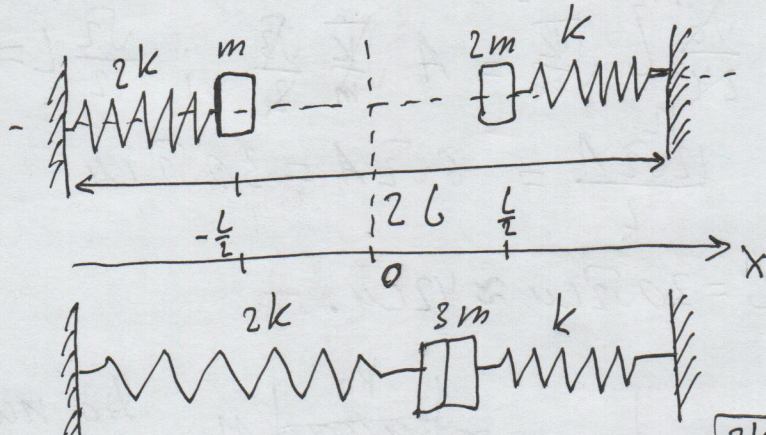 2k m 2m k
2L
-L/2 L/2
0 X
2k 3m k
2k